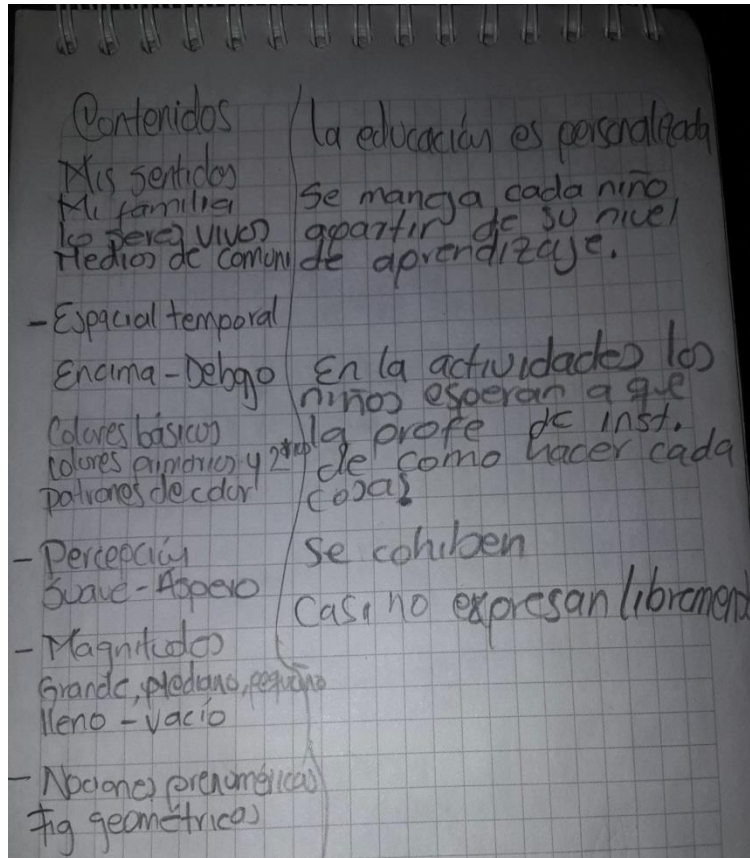 Contenidos
Mis sentidos
Mi familia
los seres vivos
Medios de comuni
- Espacial temporal
Encima - Debajo
Colores básicos
colores primarios y 2arios
patrones de color
- Percepción
Suave - Aspero
- Magnitudes
Grande, mediano, pequeño
lleno - vacío
- Nociones prenuméricas
Fig geométricas
la educación es personalizada
Se maneja cada niño
apartir de su nivel
de aprendizaje.
En la actividades los
niños esperan a que
la profe de inst.
de como hacer cada
cosas
Se cohiben
Casi no expresan librement